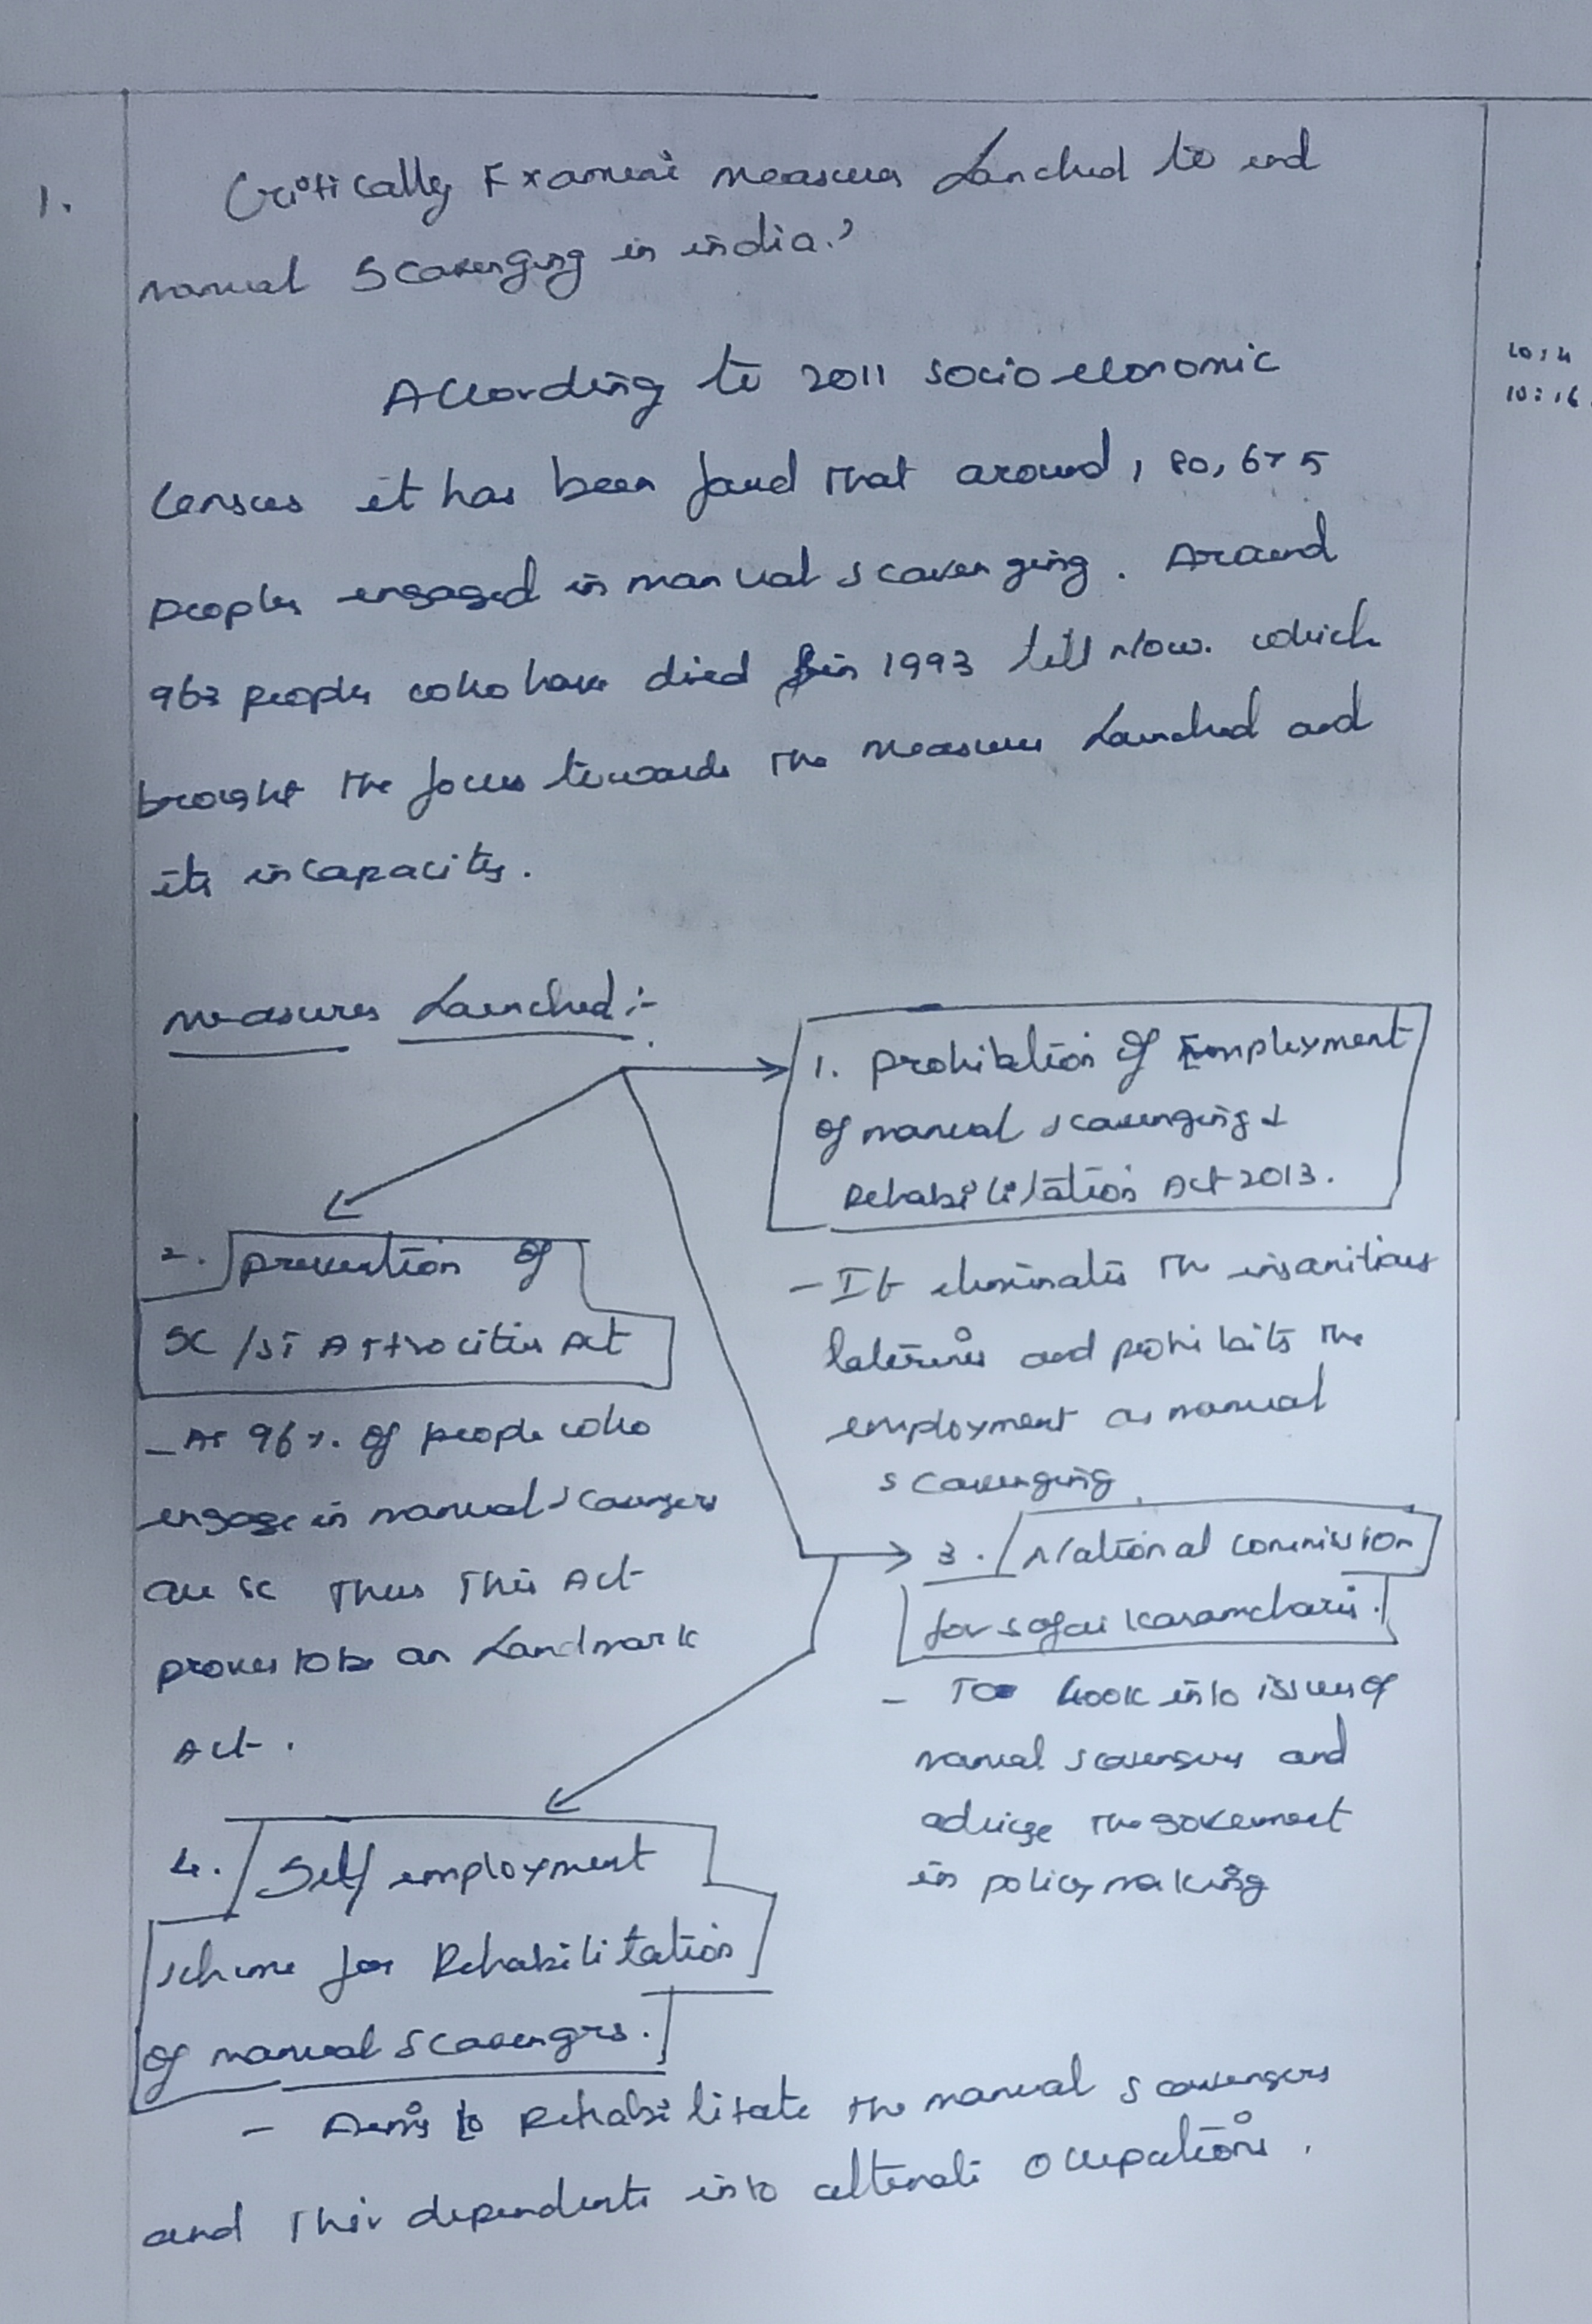 1. Critically Examine measures Lanched to end
manual Scavenging in india.?
10:4
10:16
According to 2011 socio economic
census it has been faud that around 1,80,675
peoples engaged in manual scavenging. Around
963 peoples who have died in 1993 till now. which
brought the focus towards the measures Launched and
its incapacity.
measures Launched :-
1. prohibition of Employment
of manual scavenging &
Rehabilitation Act 2013.
- It eliminates the insanitious
laterines and prohibits the
employment as manual
scavenging
2. prevention of
SC/ST Attrocities Act
- As 96%. of people who
engage in manual scavengers
are SC Thus This Act
proves to be an Landmark
Act.
3. National commission
for safai karamcharis.
- To look into issues of
manual scavengers and
advige the government
in policy making
4. Self employment
scheme for Rehabilitation
of manual scavengrs.
- Aems to Rehabilitate the manual scavengers
and Thir dependents into alternati occupations.